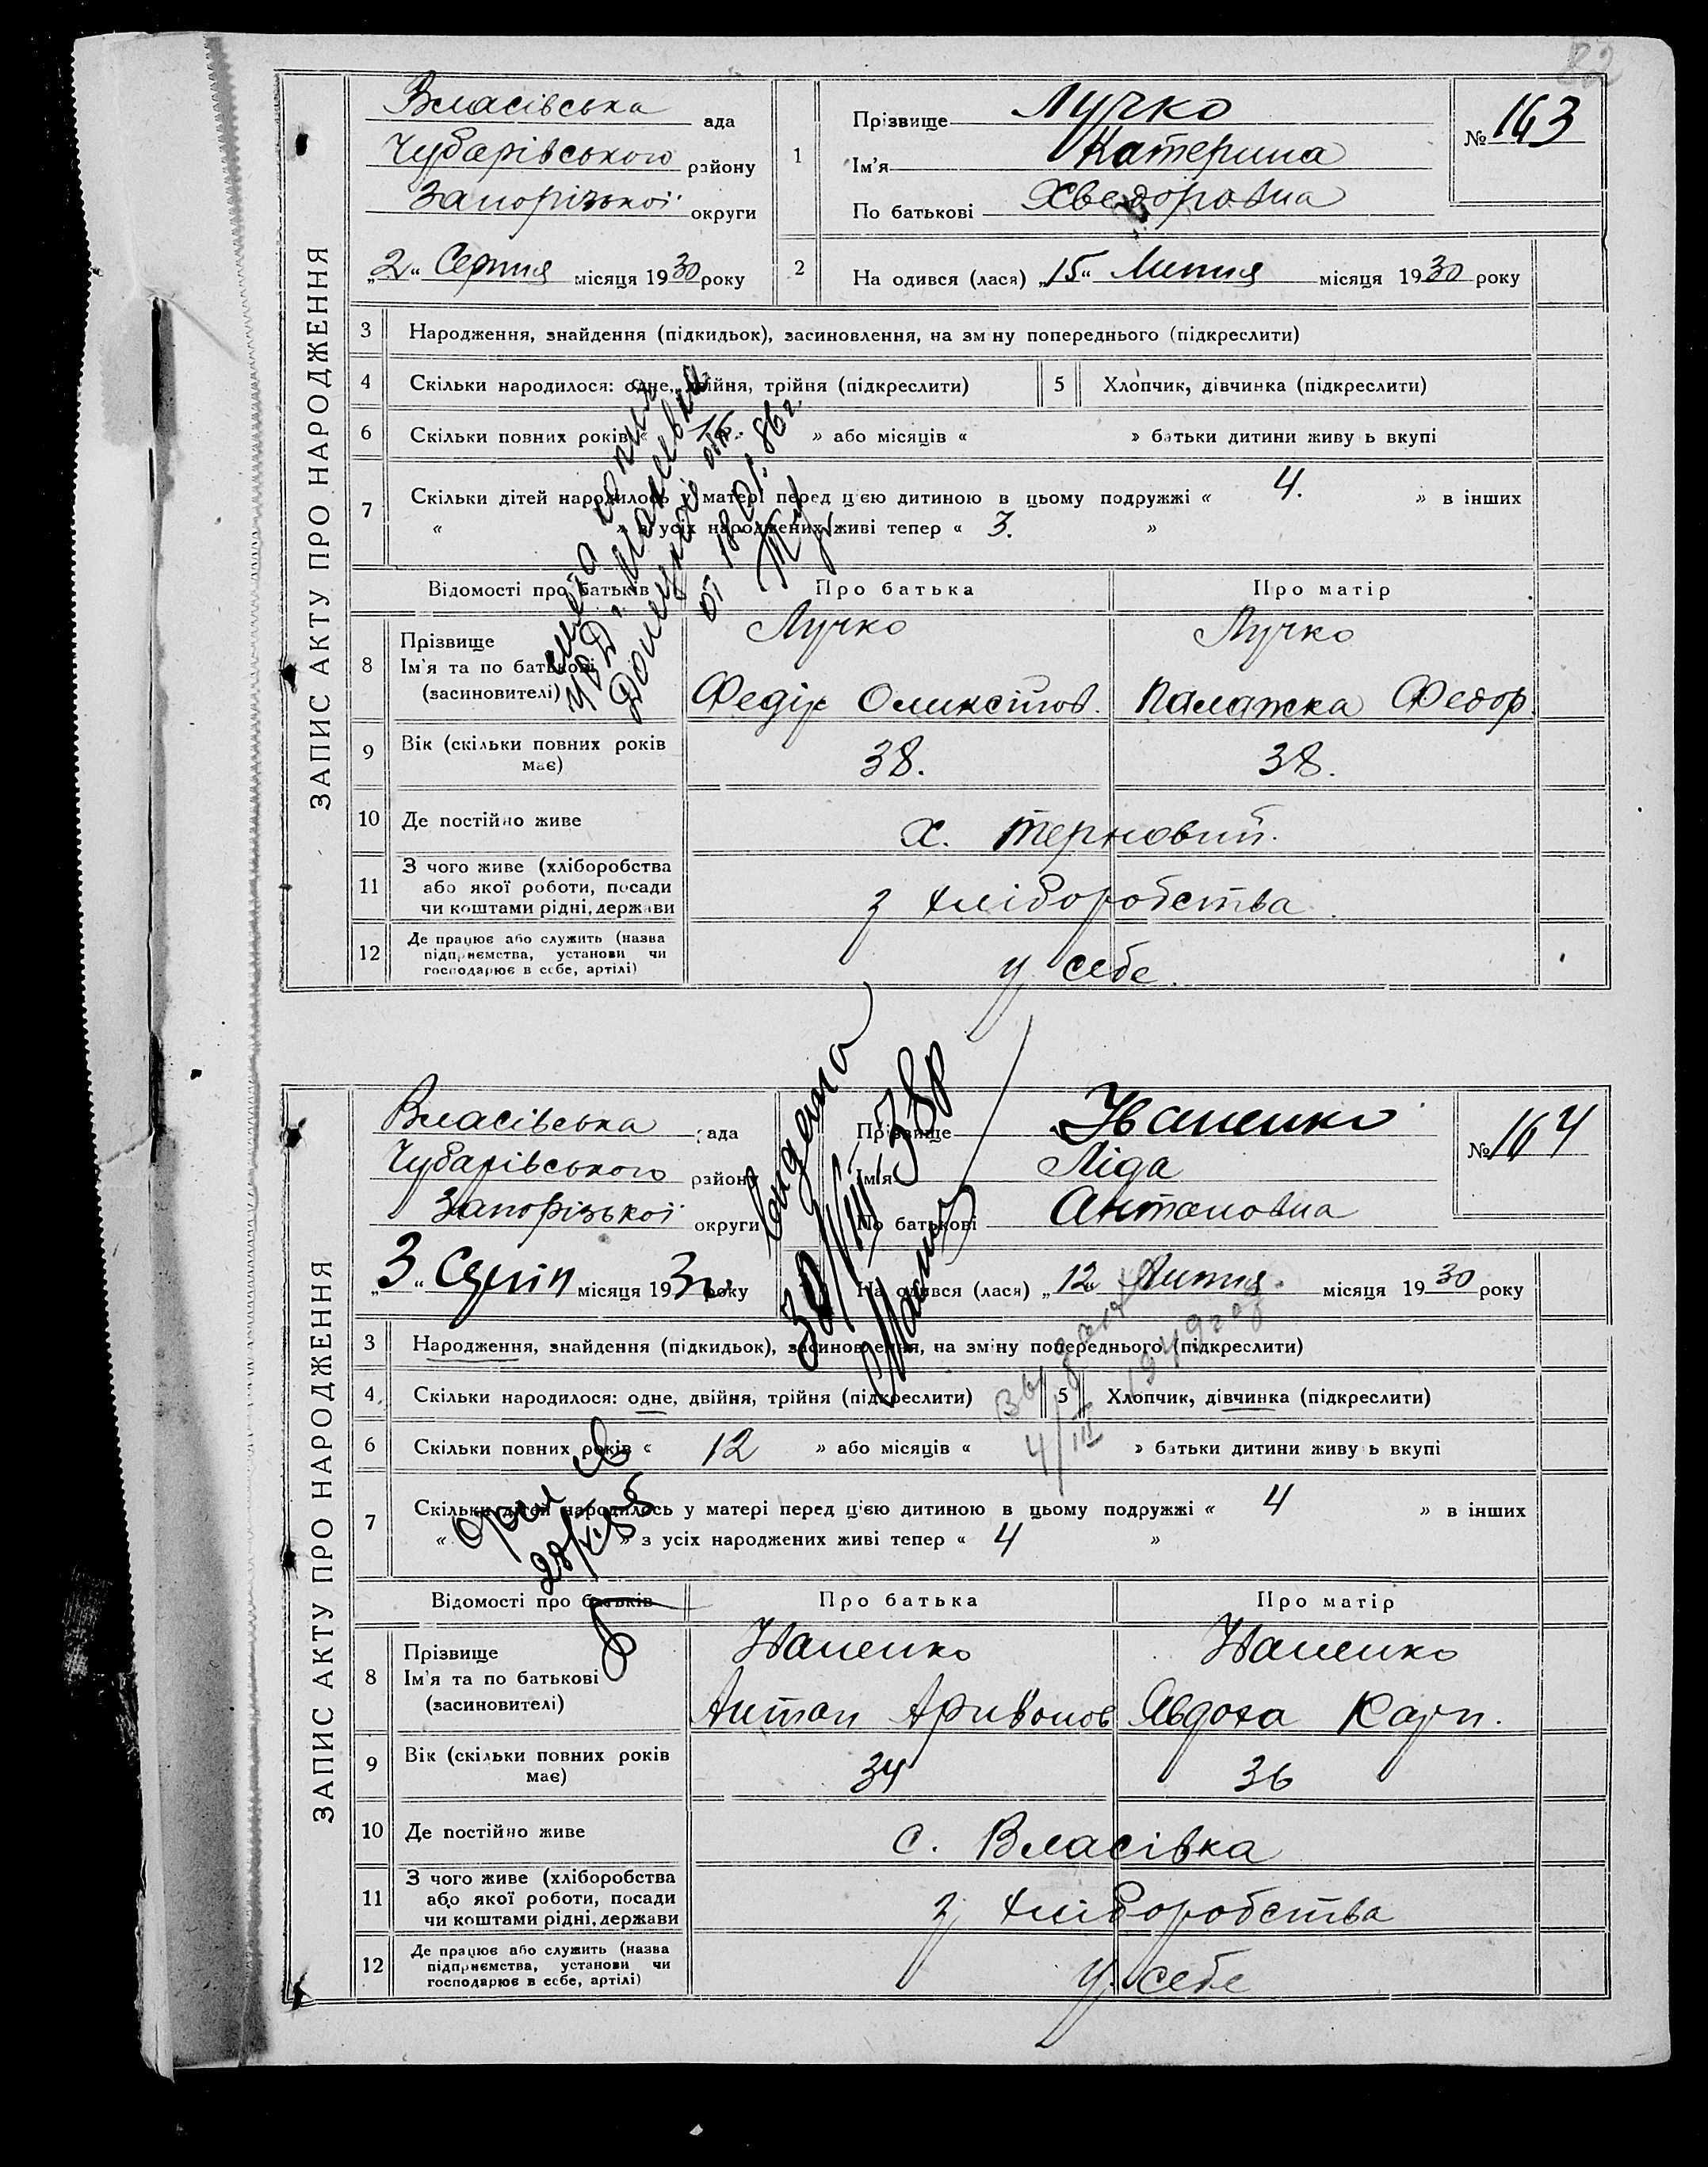 82
ЗАПИС АКТУ ПРО НАРОДЖЕННЯ
Власівська ада
Чубарівського району
Запорізької округи
„2“ Серпня місяця 1930 року
1
Прізвище Лучко
Ім'я Катерина
По батькові Хведоровна
№ 163
2
На одився (лася) „15“ Липня місяця 1930 року
3 Народження, знайдення (підкидьок), засиновлення, на зм ну попереднього (підкреслити)
4 Скільки народилося: одне, двійня, трійня (підкреслити)
5 Хлопчик, дівчинка (підкреслити)
6 Скільки повних років « 16. » або місяців « » батьки дитини живу ь вкупі
7 Скільки дітей народилось у матері перед цією дитиною в цьому подружжі « 4. » в інших
« » з усіх народжених живі тепер « 3. »
Відомості про батьків Про батька Про матір
8 Прізвище
Ім'я та по батькові
(засновителі)
Лучко
Федір
Лучко
Палажка Федор.
9 Вік (скільки повних років має) 38. 38.
10 Де постійно живе х. Терновий.
11 З чого живе (хліборобства
або якої роботи, посади
чи коштами рідні, держави
з хліборобства
12 Де працює або служить (назва
підприємства, установи чи
господарює в себе, артілі)
у себе.
от 18.01.86г.
ЗАПИС АКТУ ПРО НАРОДЖЕННЯ
Власівська ада
Чубарівського району
Запорізької округи
„3“ Серпн місяця 1930 року
Прізвище Іваненко
Ім'я Ліда
По батькові Антоновна
№ 164
На одився (лася) „12“ Липня місяця 1930 року
3 Народження, знайдення (підкидьок), засиновлення, на зміну попереднього (підкреслити)
4 Скільки народилося: одне, двійня, трійня (підкреслити)
5 Хлопчик, дівчинка (підкреслити)
6 Скільки повних років « 12 » або місяців « » батьки дитини живу ь вкупі
7 Скільки дітей народилось у матері перед цією дитиною в цьому подружжі « 4 » в інших
« » з усіх народжених живі тепер « 4 »
Відомості про батьків Про батька Про матір
8 Прізвище
Ім'я та по батькові
(засиновителі)
Іваненко
Антон
Іваненко
Явдоха Карп.
9 Вік (скільки повних років має) 34 36
10 Де постійно живе с. Власівка
11 З чого живе (хліборобства
або якої роботи, посади
чи коштами рідні, держави
з хліборобства
12 Де працює або служить (назва
підприємства, установи чи
господарює в себе, артілі)
у себе